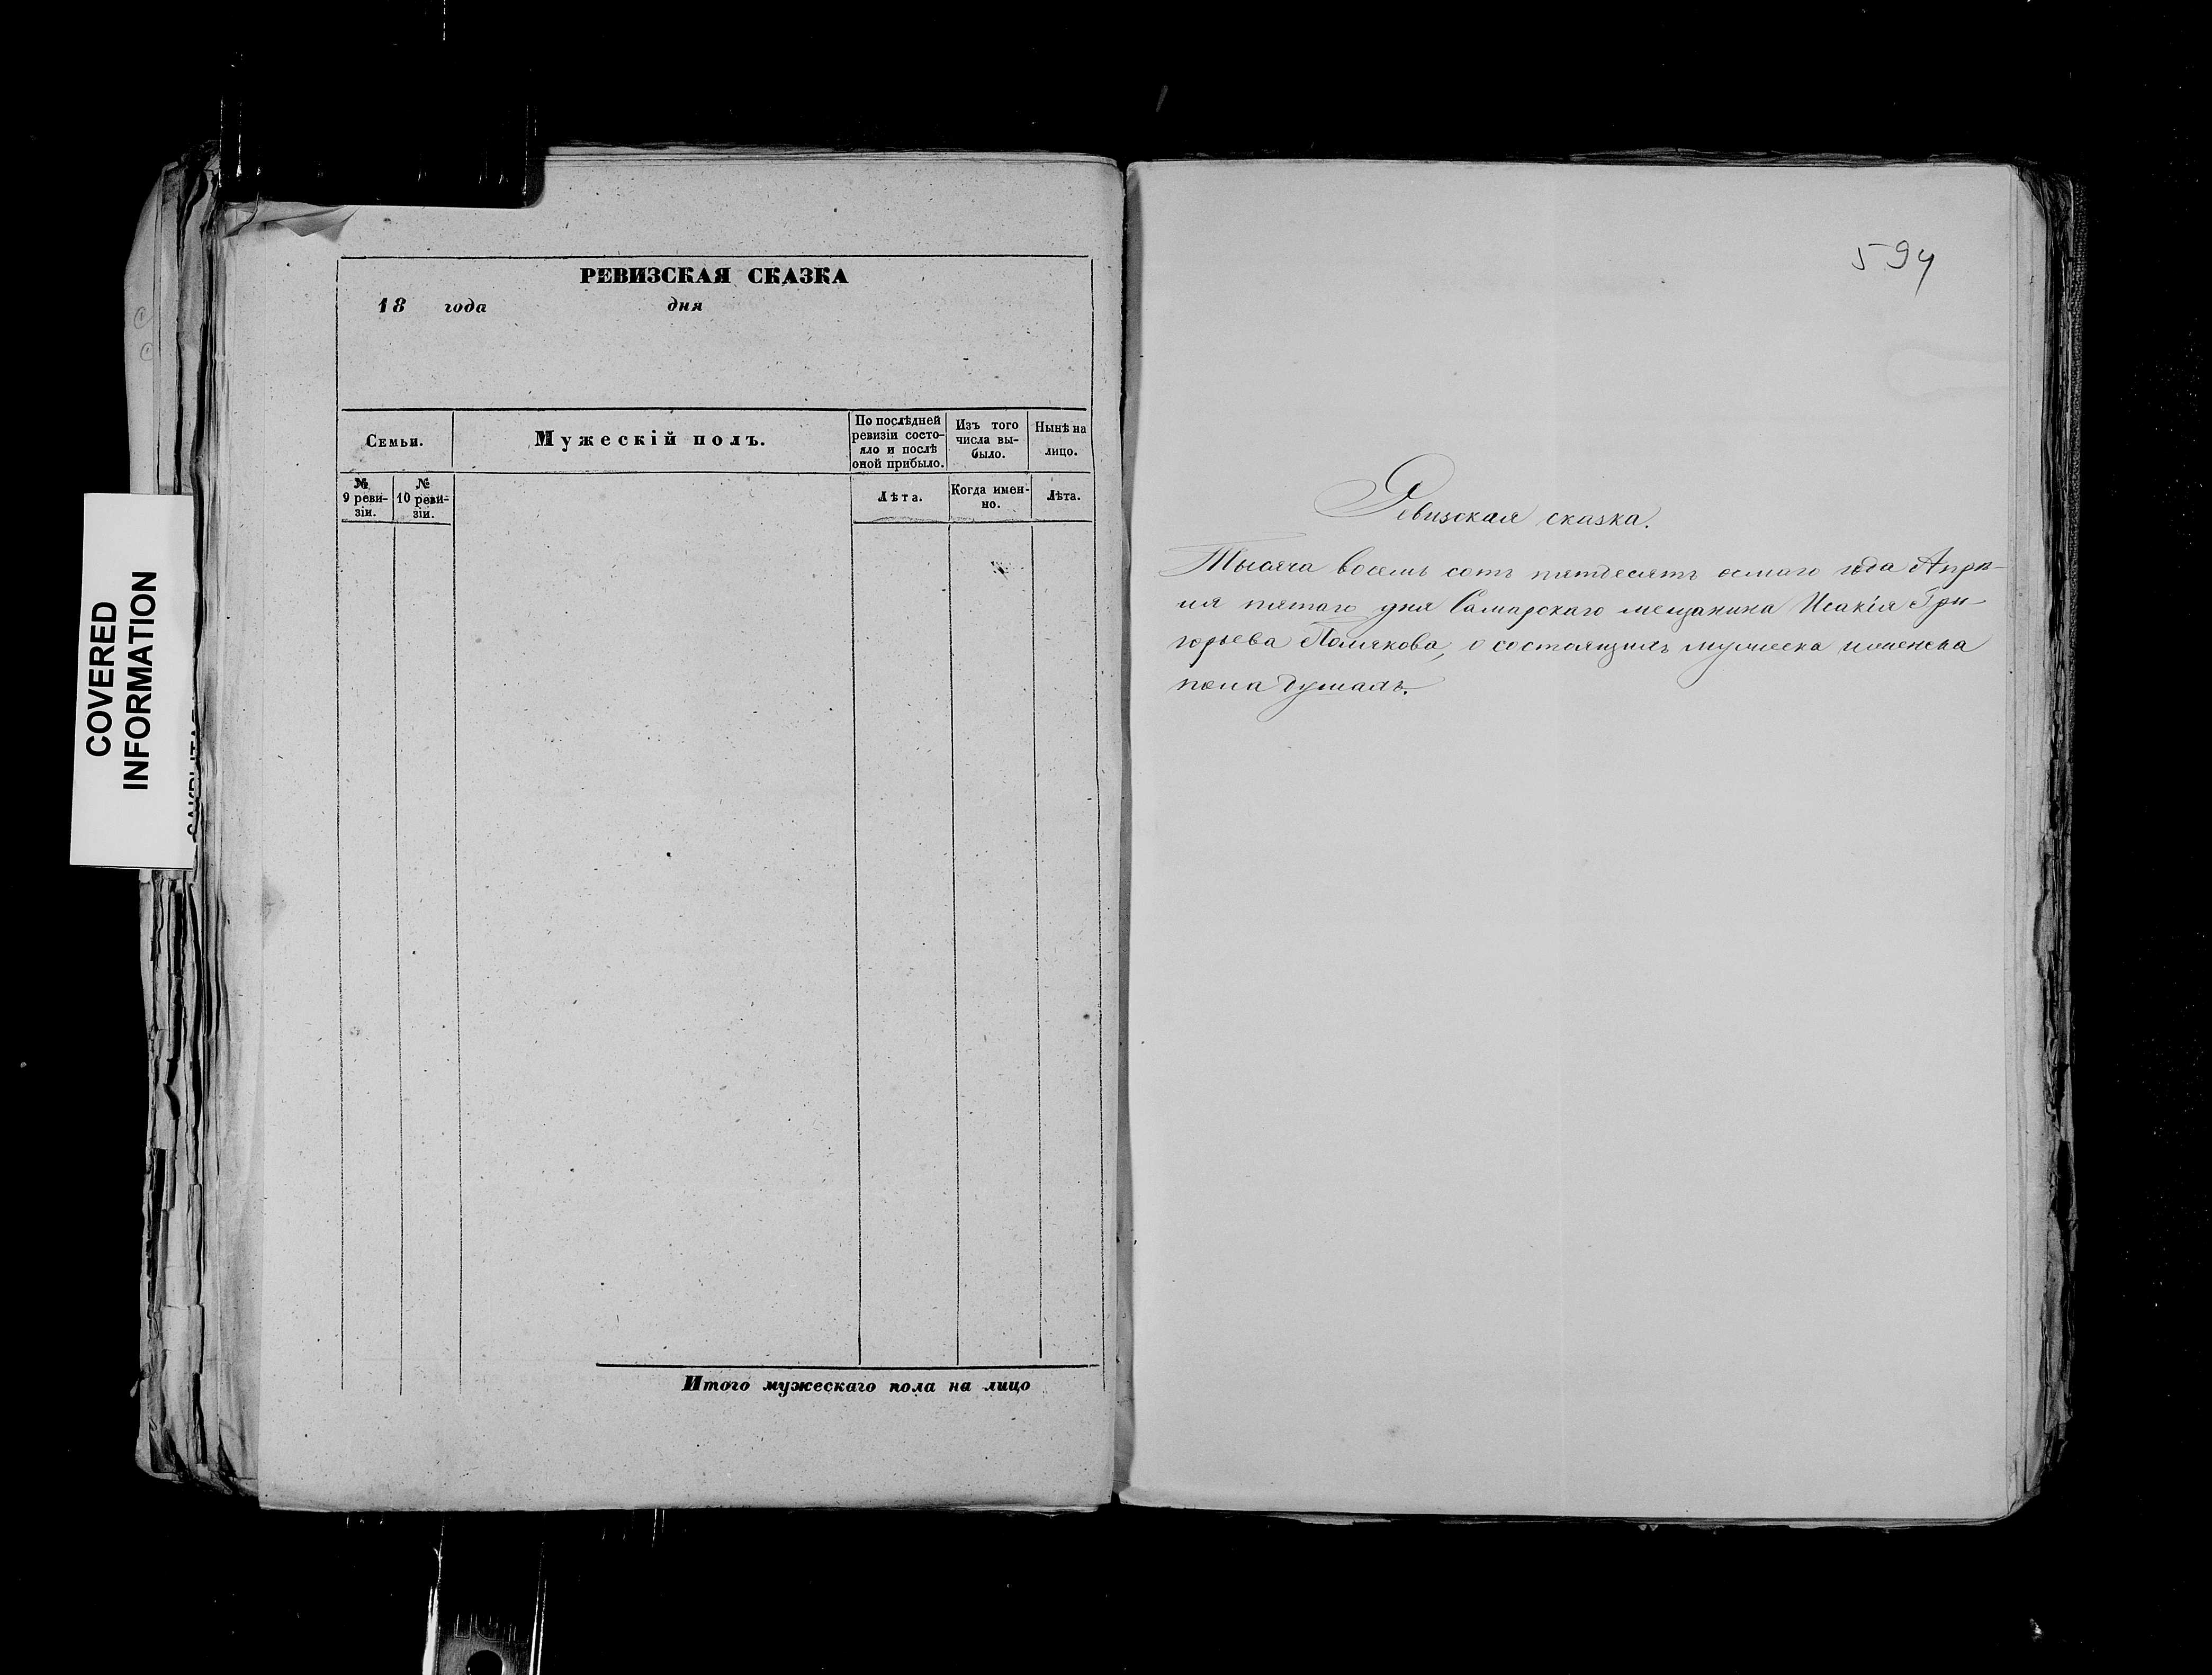 РЕВИЗСКАЯ СКАЗКА
18 года дня
Семьи.
Мужескій полъ.
По послѣдней
ревизіи состо-
яло и послѣ
оной прибыло.
Изъ того
числа вы-
было.
Нынѣ на
лицо.
№
9 реви-
зіи.
№
10 реви-
зіи.
Лѣта.
Когда имен-
но.
Лѣта.
Итого мужескаго пола на лицо
COVERED
INFORMATION
594
Ревизская сказка.
Тысяча восемь сотъ пятдесятъ осмаго года Апрѣ-
ля пятаго дня Самарскаго мещанина Исакія Гри
горьева Полякова, о состоящихъ мужеска и женска
пола душахъ.